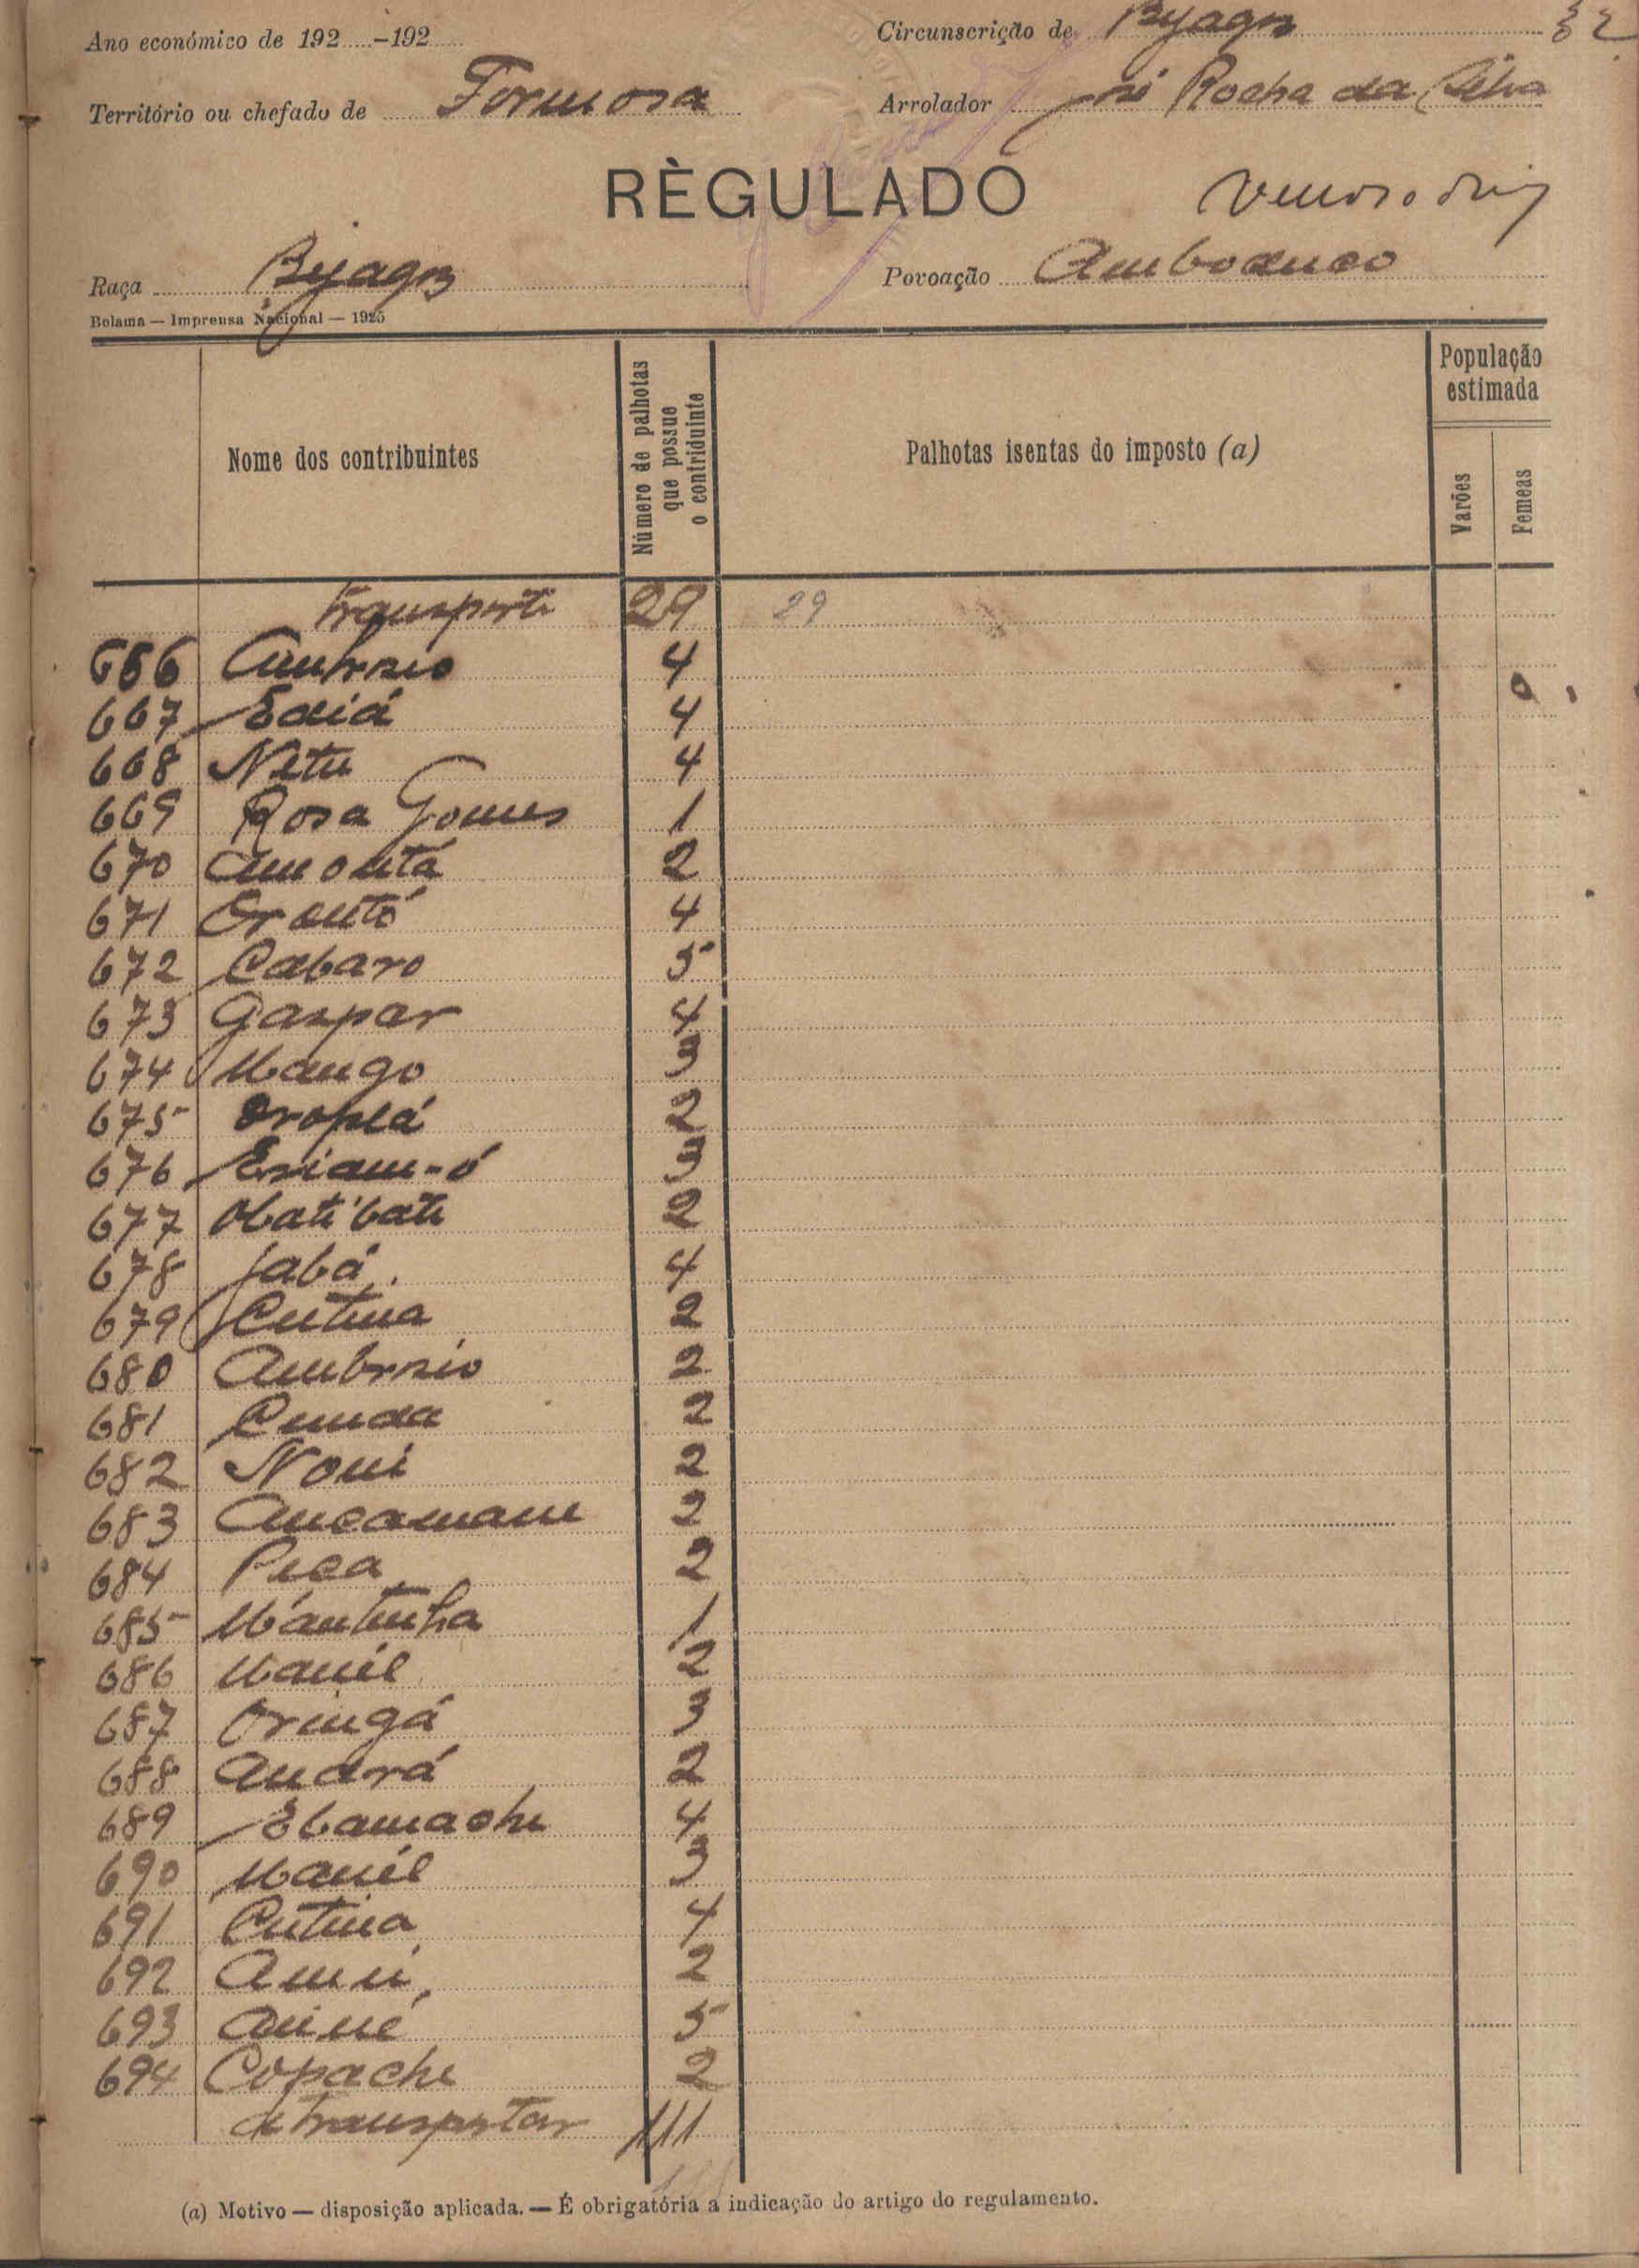 Ano económico de 192.....-192..... Circunscrição de Byagoz 32
Território ou chefado de Formosa Arrolador José Rocha da Silva
RÈGULADO
Raça Byagoz Povoação Amboduco
Bolama — Imprensa Nacional — 1925
Nome dos contribuintes Número de palhotas que possue o contriduinte Palhotas isentas do imposto (a) População estimada
Varões Femeas
Transporte 29 29
666 Ambrzio 4
667 Ediá 4
668 Netu 4
669 Rosa Gomes 1
670 Amontá 2
671 Orontó 4
672 Cabaro 5
673 Gaspar 4
674 Mango 3
675 Oroplá 2
676 Eriam-ó 3
677 Obatibati 2
678 Jabá 4
679 Cutina 2
680 Ambrzio 2
681 Cunda 2
682 Noni 2
683 Ancamame 2
684 Peca 2
685 2 1
686 Manél 2
687 Oringá 3
688 Andrá 2
689 Ebamache 4
690 Manél 3
691 Cutina 4
692 2
693 5
694 Copache 2
A transportar 111
(a) Motivo — disposição aplicada. — É obrigatória a indicação do artigo do regulamento.